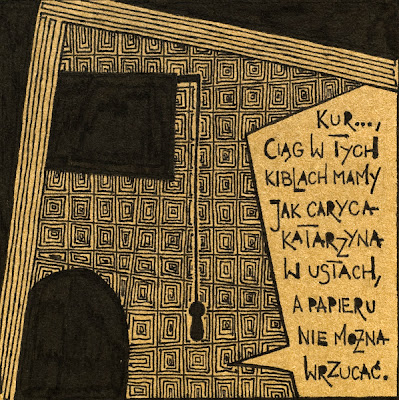 KUR...,
CIĄG W TYCH
KIBLACH MAMY
JAK CARYCA
KATARZYNA
W USTACH,
A PAPIERU
NIE MOŻNA
WRZUCAĆ.